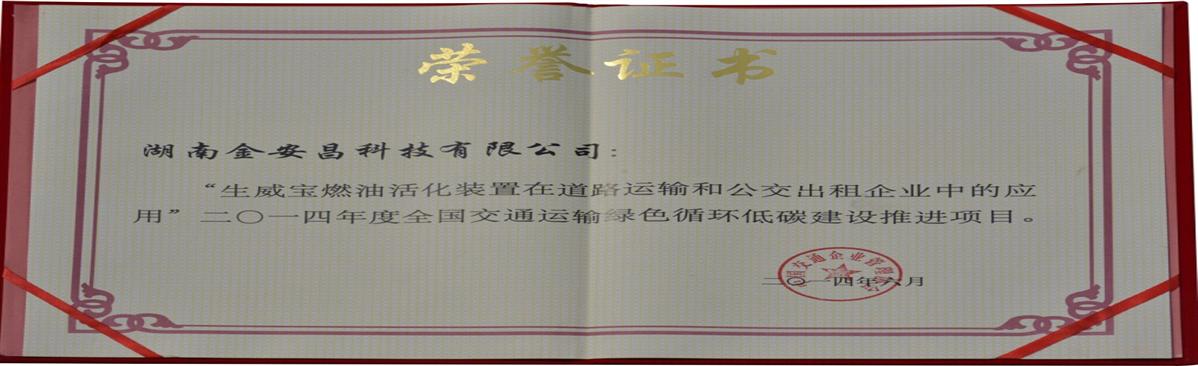 荣誉证书
湖南金安昌科技有限公司：
“生威宝燃油活化装置在道路运输和公交出租企业中的应
用”二〇一四年度全国交通运输绿色循环低碳建设推进项目。
交通企业管理
二〇一四年六月